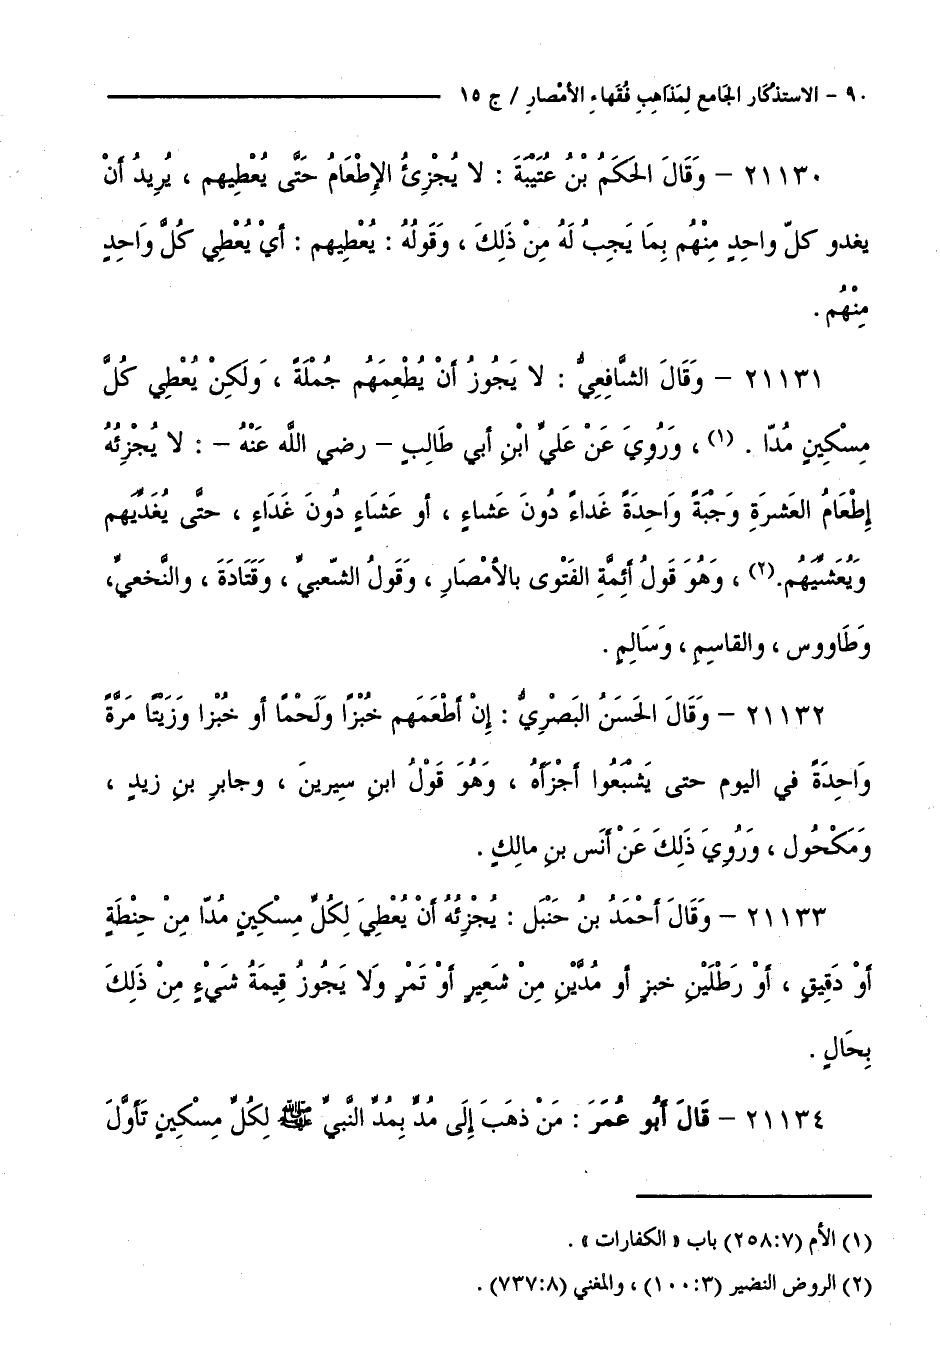 ٩٠ - الاستذكار الجامع لِمَذَاهِبِ فُقَهاءِ الأمْصارِ / ج ١٥
٢١١٣٠ – وَقَالَ الحَكَمُ بْنُ عُتَيْبَةَ : لا يُجْزِئُ الإطْعَامُ حَتَّى يُعْطِيهم ، يُرِيدُ أنْ
يغدو كلّ واحِدٍ مِنْهُم بِمَا يَجِبُ لَهُ مِنْ ذَلِكَ ، وَقَولُهُ : يُعْطِيهم : أيْ يُعْطِي كُلَّ وَاحِدٍ
مِنْهُم .
٢١١٣١ – وَقَالَ الشَّافِعِيُّ : لا يَجُوزُ أنْ يُطْعِمَهُم جُمْلَةً ، وَلَكِنْ يُعْطِي كُلَّ
مِسْكِينٍ مُدّا . (١) ، وَرُوِيَ عَنْ عَلَيِّ ابْنِ أبي طَالِبٍ – رضي اللَّه عَنْهُ – : لا يُجْزِئُهُ
إطْعَامُ العَشرَةِ وَجْبَةً وَاحِدَةً غَداءً دُونَ عَشاءٍ ، أو عَشَاءٍ دُونَ غَدَاءٍ ، حتَّى يُغَدِّيَهم
وَيُعَشِّيَهُم.(٢) ، وَهُوَ قَولُ أئِمَّةِ الفَتْوى بالأمْصَارِ ، وَقَولُ الشّعبيِّ ، وَقَتَادَةَ ، والنَّخعيِّ،
وَطَاووس ، والقاسِمِ ، وَسَالِمٍ .
٢١١٣٢ – وَقَالَ الحَسَنُ البَصْرِيُّ : إنْ أطْعَمَهم خُبْزًا وَلَحْمًا أو خُبْزا وَزَيْتًا مَرَّةً
وَاحِدَةً في اليوم حتى يَشْبَعُوا أجْزَأهُ ، وَهُوَ قَوْلُ ابنِ سِيرينَ ، وجابرِ بنِ زيدٍ ،
وَمَكْحُول ، وَرُوِيَ ذَلِكَ عَنْ أنَس بنِ مالِكٍ .
٢١١٣٣ – وَقَالَ أحْمَدُ بنُ حَنْبَل : يُجْزِئُهُ أنْ يُعْطِيَ لِكُلِّ مِسْكِينٍ مُدّا مِنْ حِنْطَةٍ
أوْ دَقِيقٍ ، أوْ رَطْلَيْنِ خبزٍ أو مُدَّيْنِ مِنْ شَعِيرٍ أوْ تَمْرٍ وَلا يَجُوزُ قِيمَةُ شَيْءٍ مِنْ ذَلِكَ
بِحَالٍ .
٢١١٣٤ – قَالَ أبُو عُمَرَ : مَنْ ذهَبَ إلَى مُدِّ بِمُدِّ النَّبيِّ ﷺ لِكُلِّ مِسْكِينٍ تَأوَّلَ
(١) الأم (٧:٢٥٨) باب « الكفارات » .
(٢) الروض النضير (٣:١٠٠) ، والمغني (٨:٧٣٧) .